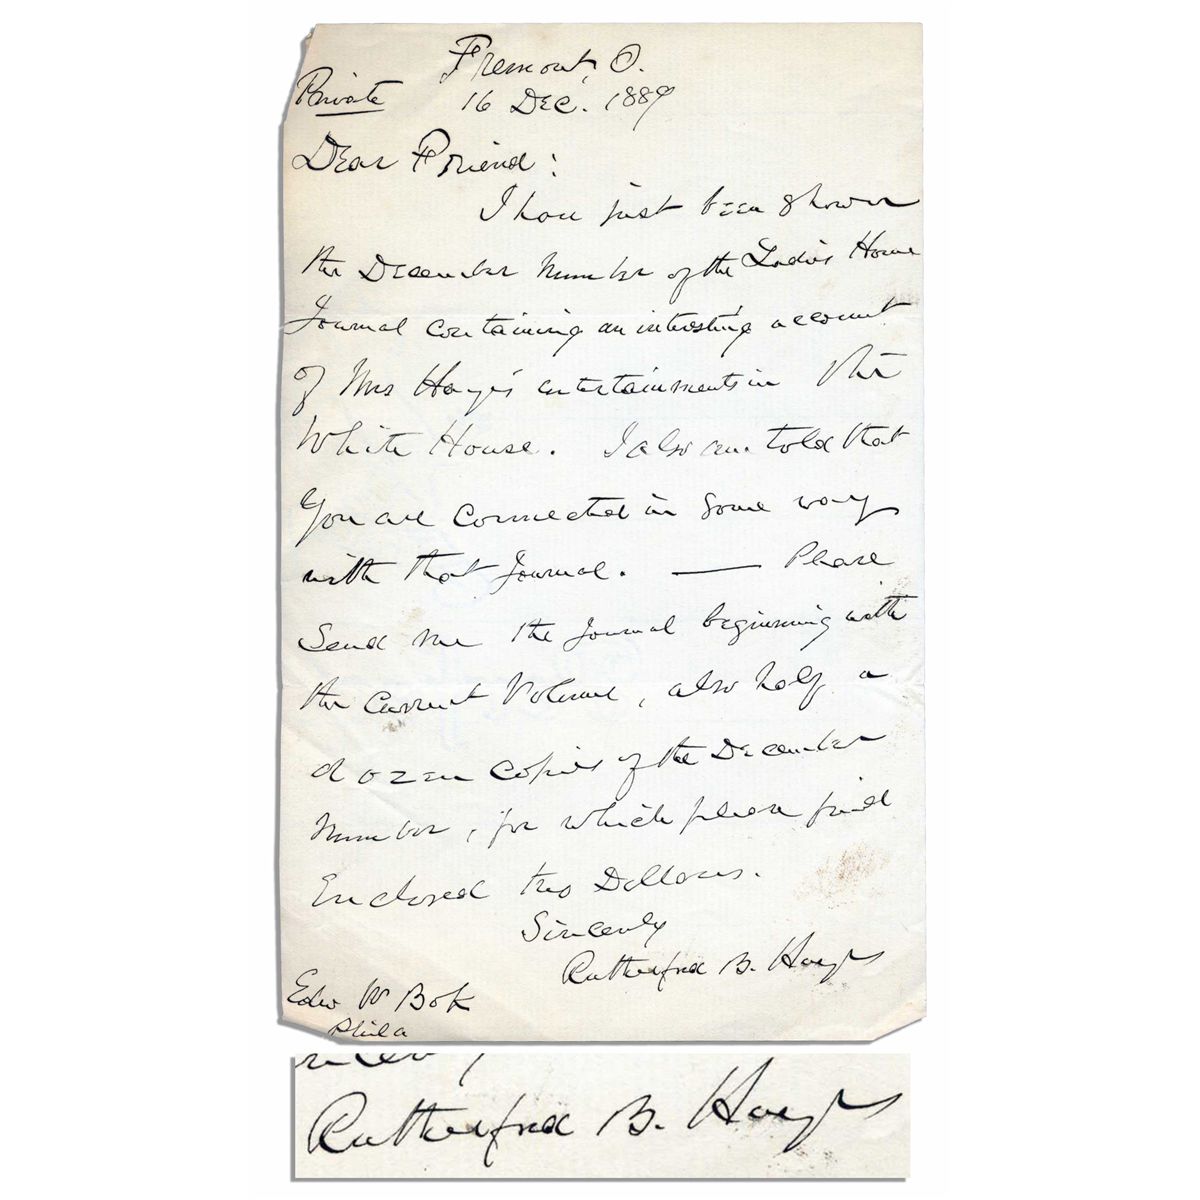 Fremont, O.
Private 16 Dec. 1889
Dear Friend:
I have just been shown
the December number of the Ladies Home
Journal containing an interesting account
of Mrs Hayes's entertainments in the
White House. I also am told that
you are connected in some way
with that Journal. — Please
send me the Journal beginning with
the current Volume, also half a
dozen copies of the December
number, for which please find
Enclosed two Dollars.
Sincerely
Rutherford B. Hayes
Edw W Bok
Phila
Rutherford B. Hayes